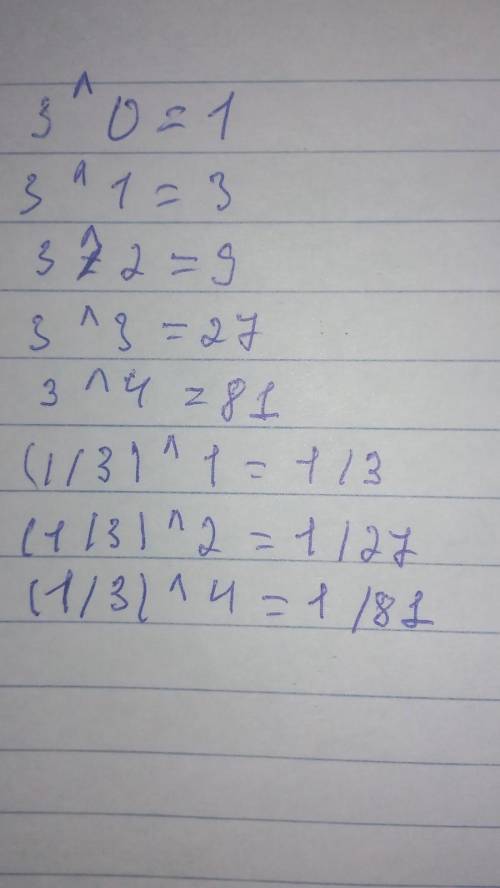 3 ^ 0 = 1
3 ^ 1 = 3
3 ^ 2 = 9
3 ^ 3 = 27
3 ^ 4 = 81
(1/3) ^ 1 = 1/3
(1/3) ^ 2 = 1/27
(1/3) ^ 4 = 1/81